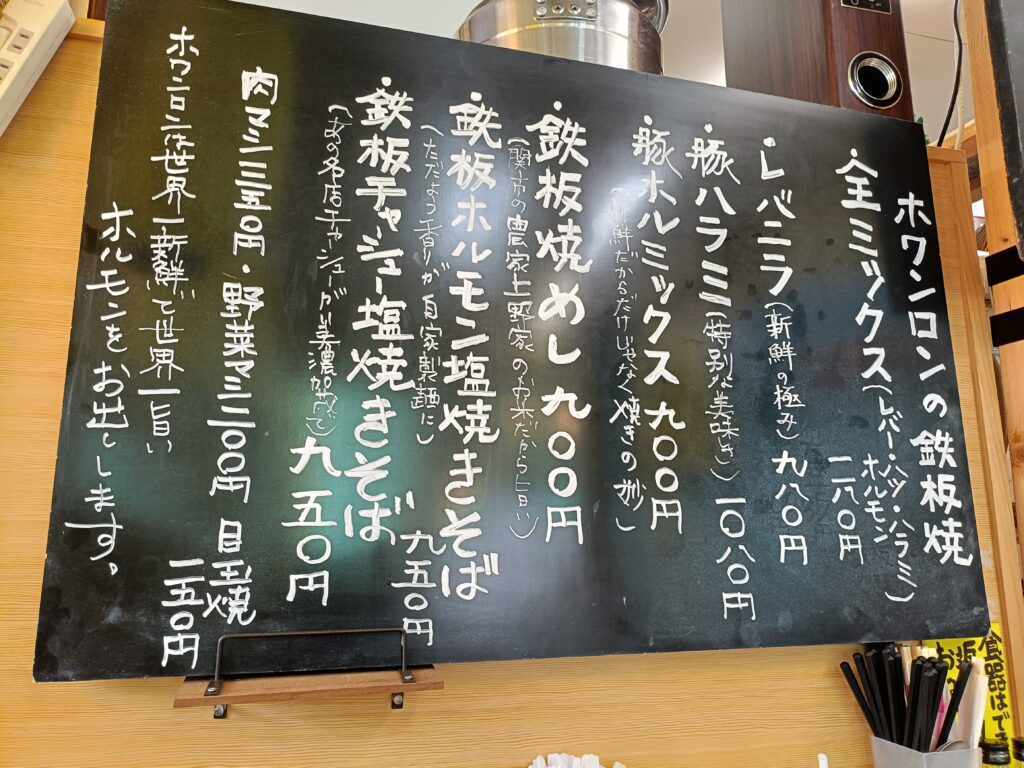 ホワンロンの鉄板焼
・全ミックス(レバー・ハツ・ハラミ)
ホルモン
一一八〇円
・レバニラ(新鮮の極み)九八〇円
・豚ハラミ(特別な美味しさ)一〇八〇円
・豚ホルミックス九〇〇円
(新鮮だからだけじゃなく焼きの妙)
・鉄板焼めし九〇〇円
(関市の農家上野家のお米だから旨い)
・鉄板ホルモン塩焼きそば
(ただよう香りが自家製麺に)
九五〇円
・鉄板チャーシュー塩焼きそば
(あの名店チャーシューが美濃加茂で)九五〇円
肉マシ三五〇円・野菜マシ三〇〇円 目玉焼
一五〇円
ホワンロンは世界一新鮮で世界一旨い
ホルモンをお出しします。
食器はでき
返
お